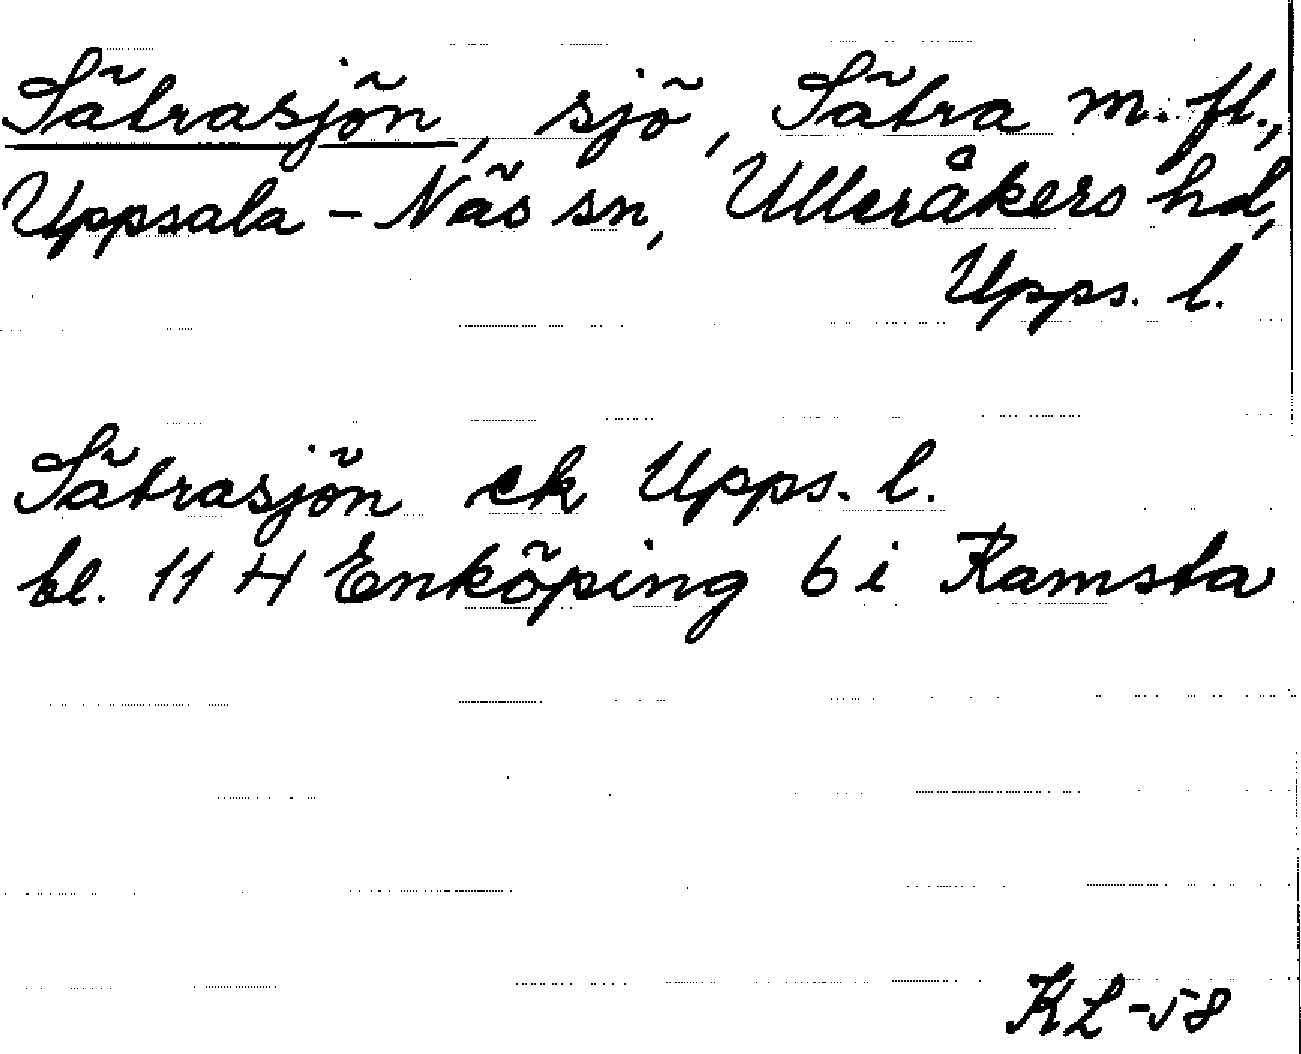 Sätrasjön, sjö, Sätra m. fl.,
Uppsala-Näs sn, Ulleråkers hd,
Upps. l.
Sätrasjön ek Upps. l.
bl. 11 H Enköping 6 i Ramsta
KL-58